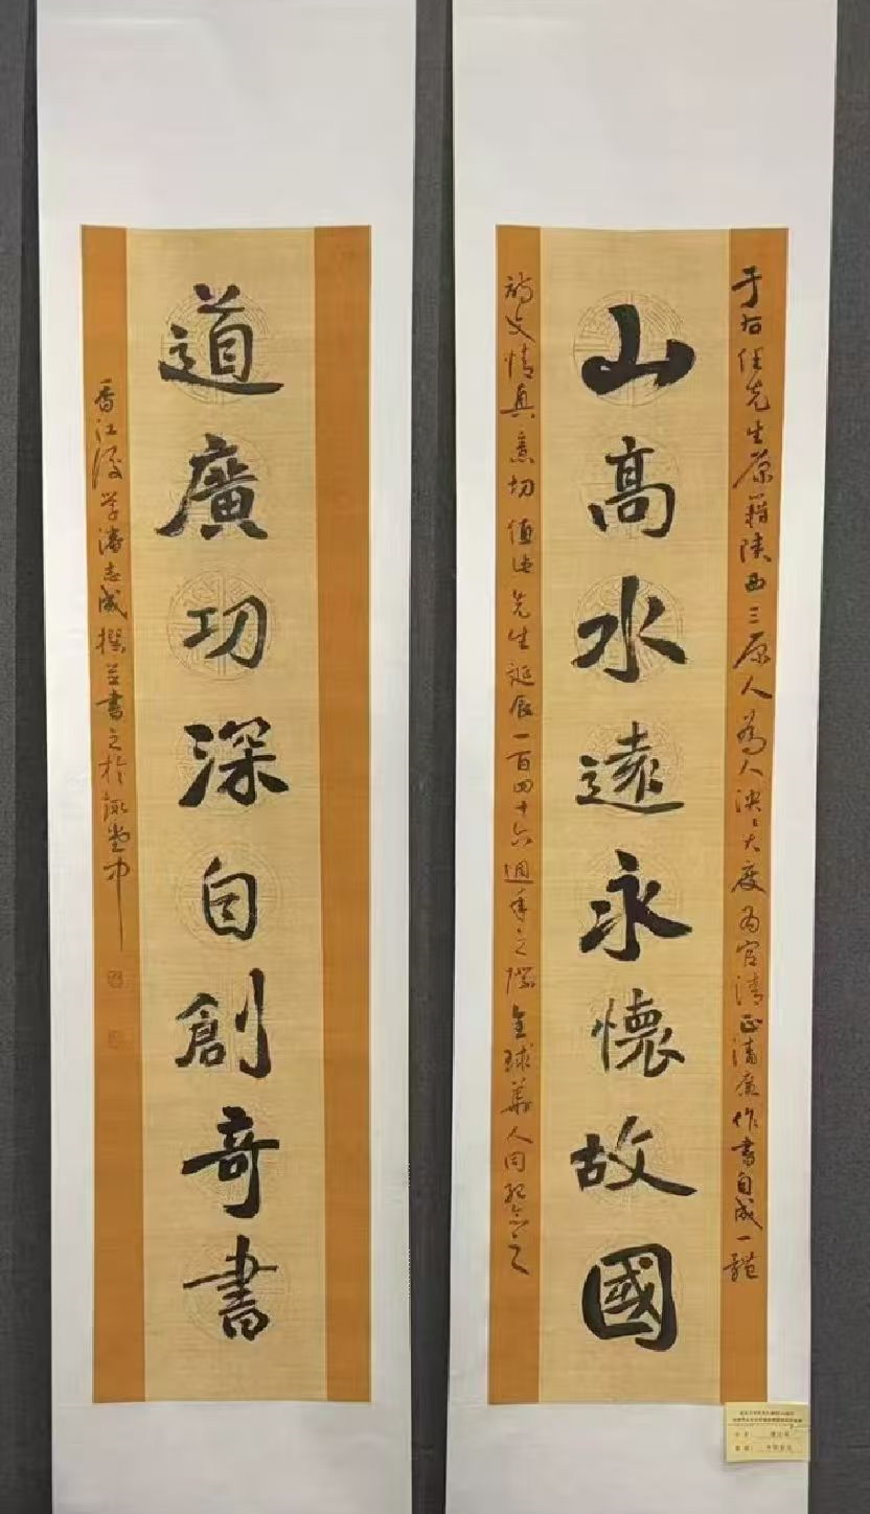 于右任先生原籍陝西三原人為人泱泱大度為官清正清廉作書自成一體
山高水遠永懷故國
詩文情真意切值先生誕辰一百四十六週年之際全球華人同紀念之
道廣功深自創奇書
香江後學潘志成撰並書之於 堂中